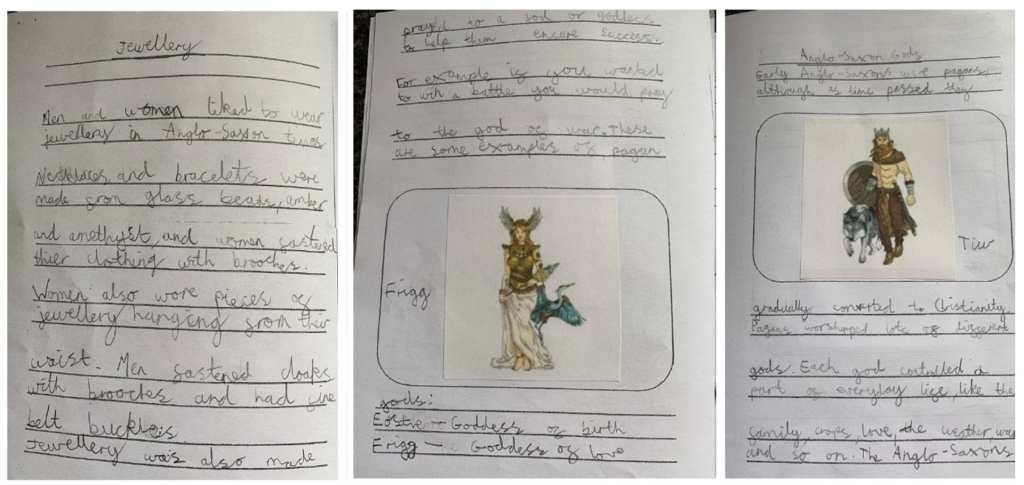 Jewellery
Men and women liked to wear
jewellery in Anglo-Saxon times
Necklaces and bracelets were
made from glass beads, amber
and amethyst, and women fastened
thier clothing with brooches.
Women also wore pieces of
jewellery hanging from their
waist. Men fastened cloaks
with brooches and had fine
belt buckles.
Jewellery was also made
prayed to a god or goddess
to help them ensure success.
For example if you wanted
to win a battle you would pray
to the god of war. These
are some examples of pagan
Frigg
gods:
Eostre - Goddess of birth
Frigg - Goddess of love
Anglo-Saxon Gods
Early Anglo-Saxons were pagans,
although as time passed they
Tiw
gradually converted to Christianity.
Pagans worshipped lots of different
gods. Each god controlled a
part of everyday life, like the
family, crops, love, the weather, war
and so on. The Anglo-Saxons